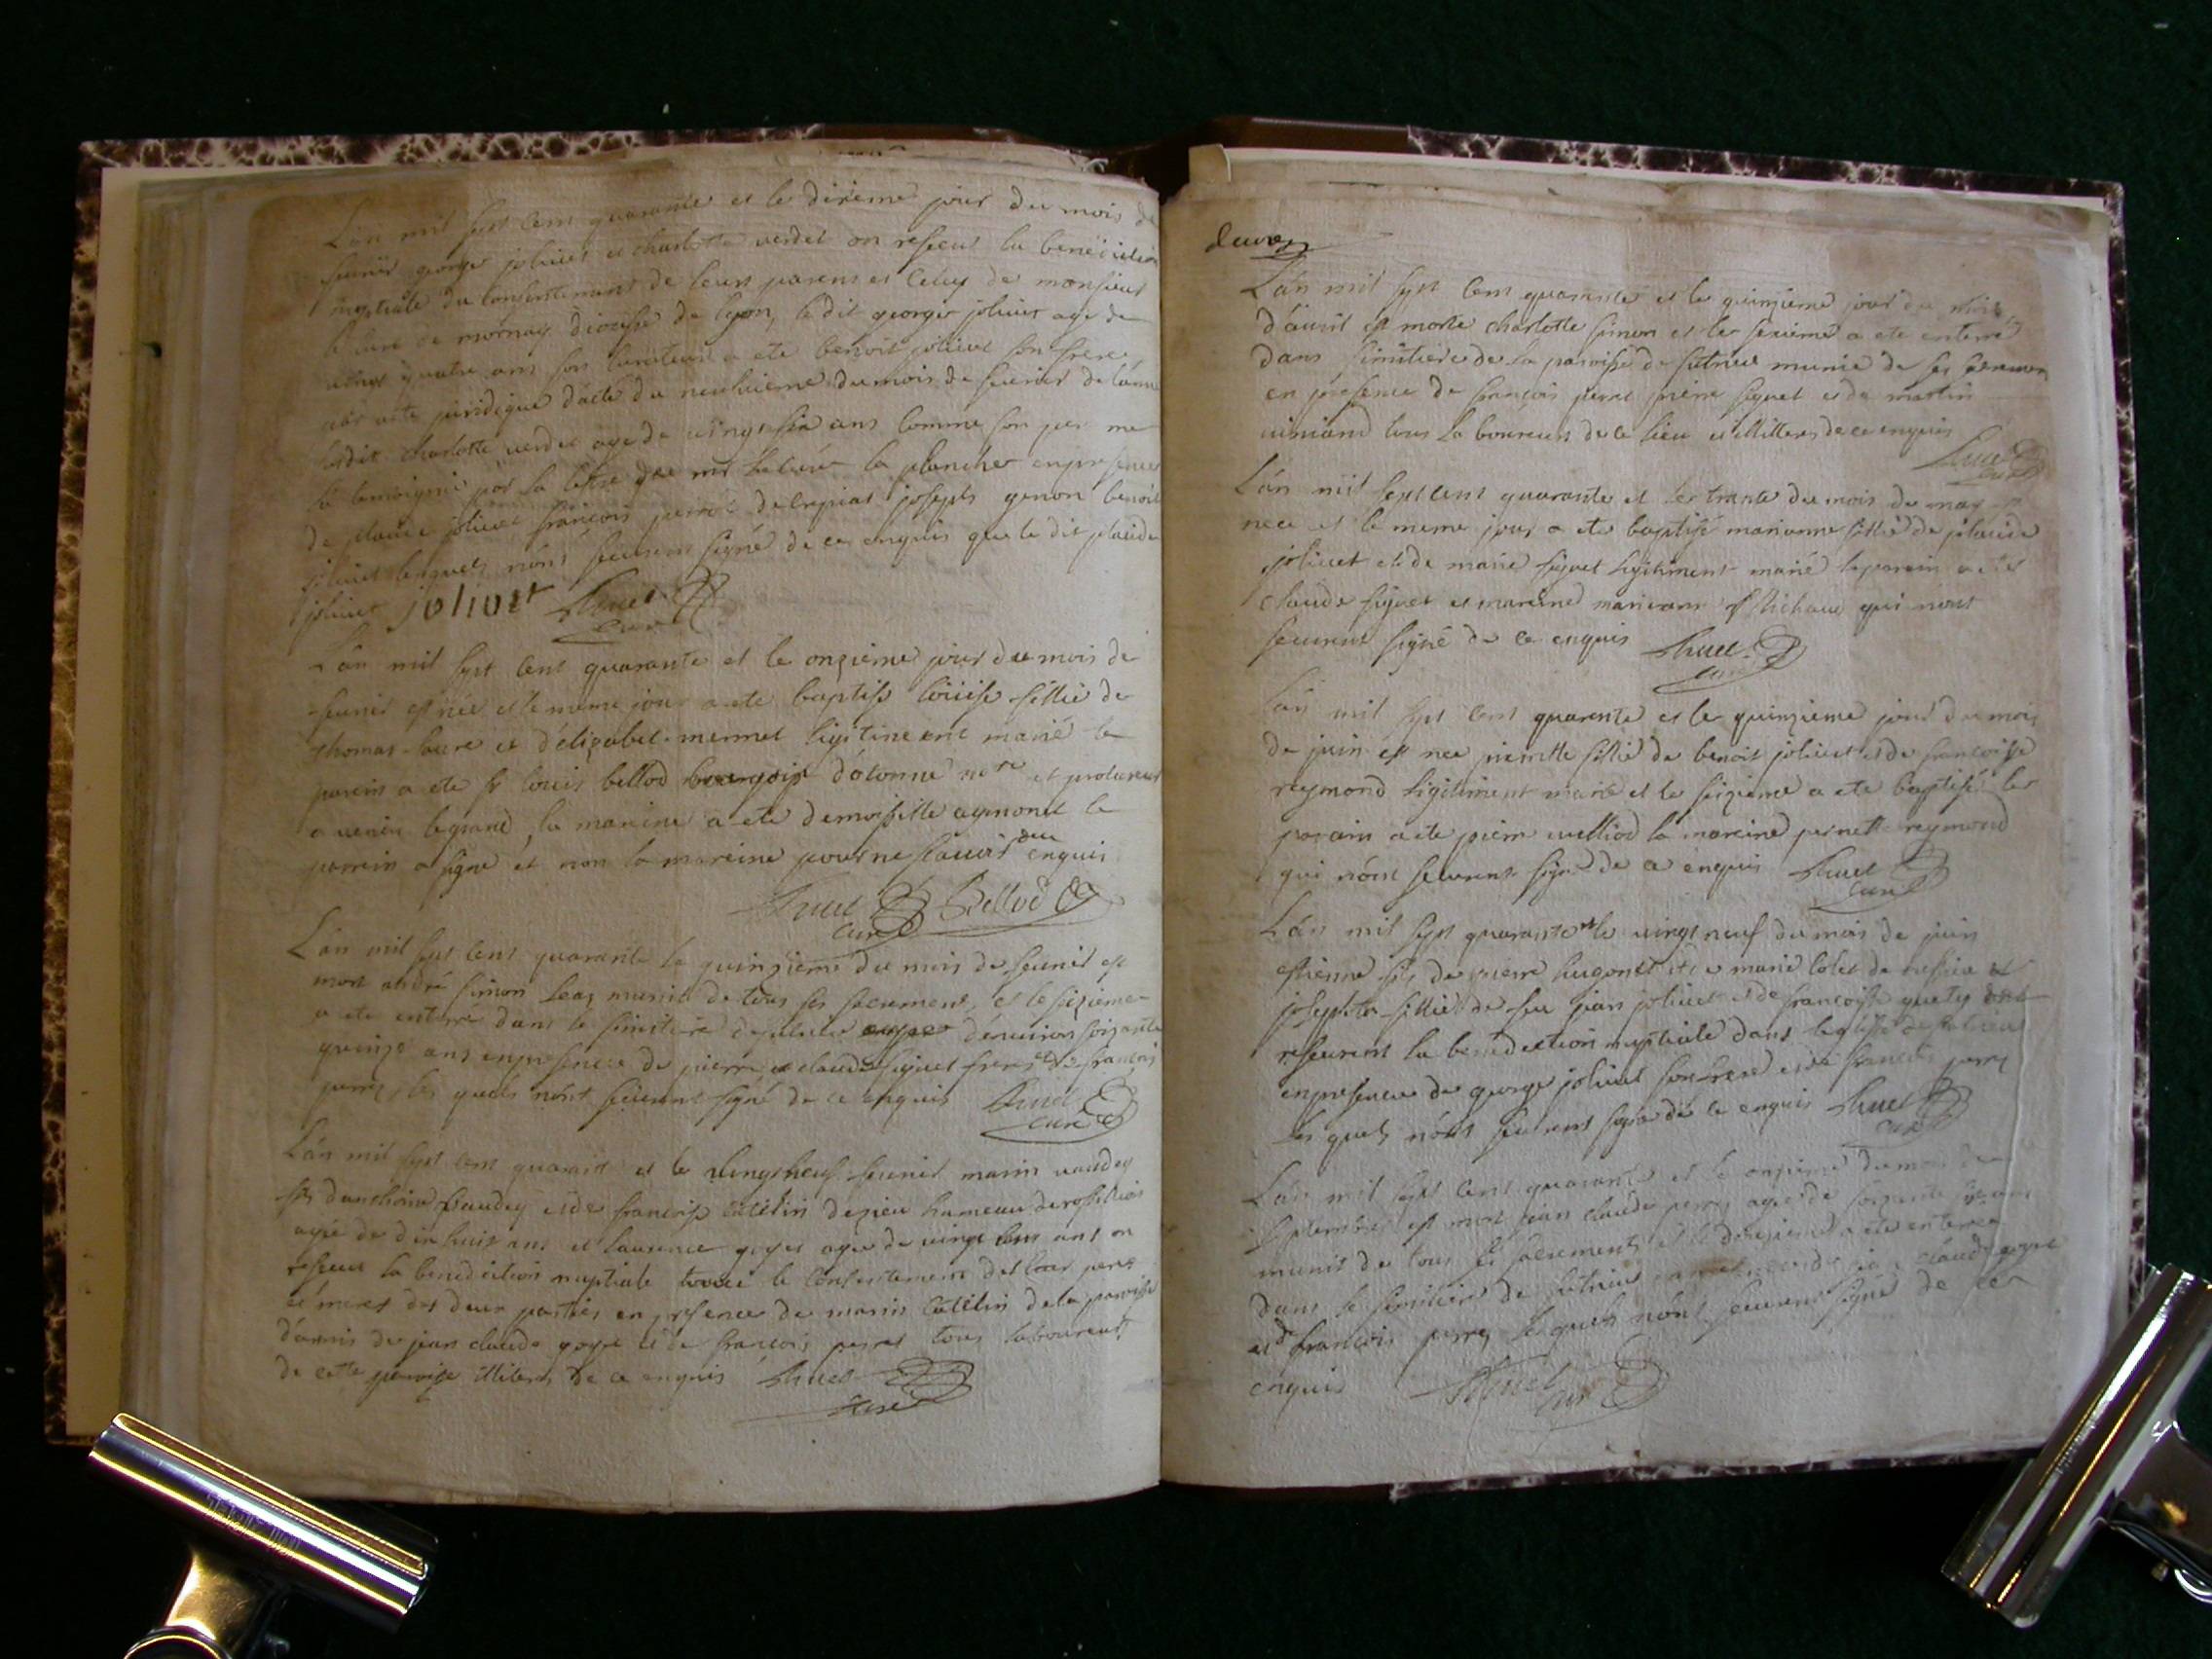 L'án mil sept cent quarante et le dixieme jour du mois de
feurier george joliuet et charlotte verdet on resseut la benediction
nuptiale du consentement de leurs parens et celuy de monsieur
le curé de mornay diocesse de lyon, le dit george joliuet age de
vingt quatre ans son curateur a ete benoit joliuet son frere
par acte juridique daté du neufuieme du mois de feurier de l'anné
ladit charlotte verdet age de vingt six ans comme son per me
la temoigné par sa lettre de mr le curé la plancher en presence
de claude joliuet françois perrot delepiat joseph genon benoit
joliuet lesquels nónt seurent signé de ce enquis que le dit placide
joliuet joliuet Huet
curé
L'án mil sept cent quarante et le onzieme jour du mois de
feurier est née et le meme jour a ete baptisé loüise fillie de
thomas faure et d'elizabet mermet legitiment marié le
parein a ete sr louis bellod bourgois d'otonne nore et procureur
a venin legrand, la mareine a ete demoiselle aymonet le
parrein a signé et non la mareine pour ne sçauoir deu enquis
Huet curé Bellod
L'án mil sept cent quarante le quinzieme du mois de feurier est
mort andré simon leaz munit de tous ses sacrement, et le seizieme
a ete enterré dans le simitiere de sutrieu d'enuiron soizante
quinze ans en presence de pierre et claude siguet freres et de francois
perrez, les quels nónt seurent signé de ce enquis Huet
curé
L'án mil sept cent quarante et le vingt neuf feurier marin vaudey
fis d'anthoine vaudey et de francoise catelin de zieu hameau de rossillion
agée de dix huit ans et laurence goyet age de vingt ans on
resseu la benediction nuptiale le consentement des peres
et meres des deux parties en presence de marin catelin de la paroisse
d'armis de jean claude goyet et de françois perret tous laboureurs
de cette paroisse illiteres de ce enquis Huet
curé
L'án mil sept cent quarante et le quinzieme jour du mois
d'áuril est morte charlotte simon et le sezieme a ete enterré
dans simitiere de la paroisse de sutrieu munie de ses sacremens
en présence de françois perret pierre siguet et de martin
tous laboureurs de ce lieu et illitters de ce enquis
Huet
curé
L'án mil sept cent quarante et le trante du mois de may est
nee et le meme jour a ete baptisé marianne fillié de placide
joliuet et de marie siguet legitiment marié le parein a ete
claude siguet et mareine marieanne Michaud qui nónt
seurent signé de ce enquis Huet
curé
L'án mil sept cent quarante et le quinzieme jour du mois
de juin est nee pierrette fillié de benoit joliuet et de françoise
reymond legitiment marié et le seizieme a ete baptisé le
parain a ete pierre la mareine pernette reymond
qui nónt seurent signé de ce enquis Huet
curé
L'án mil sept quarante et le vingt neuf du mois de juin
estienne fils de pierre hugonet et de marie colet de et
josephta fillié de feu jean joliuet et de françoise guety ont
resseurent la benediction nuptiale dans leglisse de sutrieu
en presence de george joliuet son frere et de francois perrez
les quels nónt seurent signé de ce enquis Huet
curé
L'án mil sept cent quarante et le onzieme du mois de
septembre est mort jean claude perrez agée de soizante ans
munit de tous ses sacrements et le douzieme a ete enterré
dans le simitiere de sutrieu en presence de jean claude goyet
et de françois perrez lesquels nónt seurent signé de ce
enquis Huet
curé